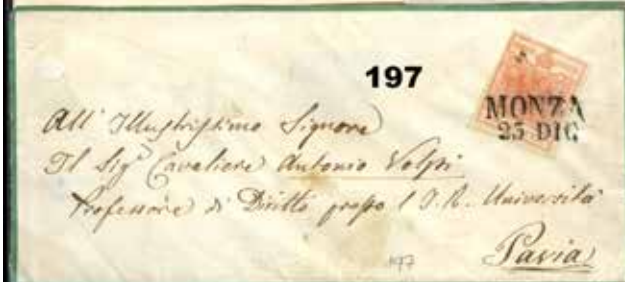 197
MONZA
23 DIC
All' Illustrissimo Signore
Il Sig.r Cavaliere Antonio Volpi
Professore di Diritto presso l' I. R. Università
Pavia
197